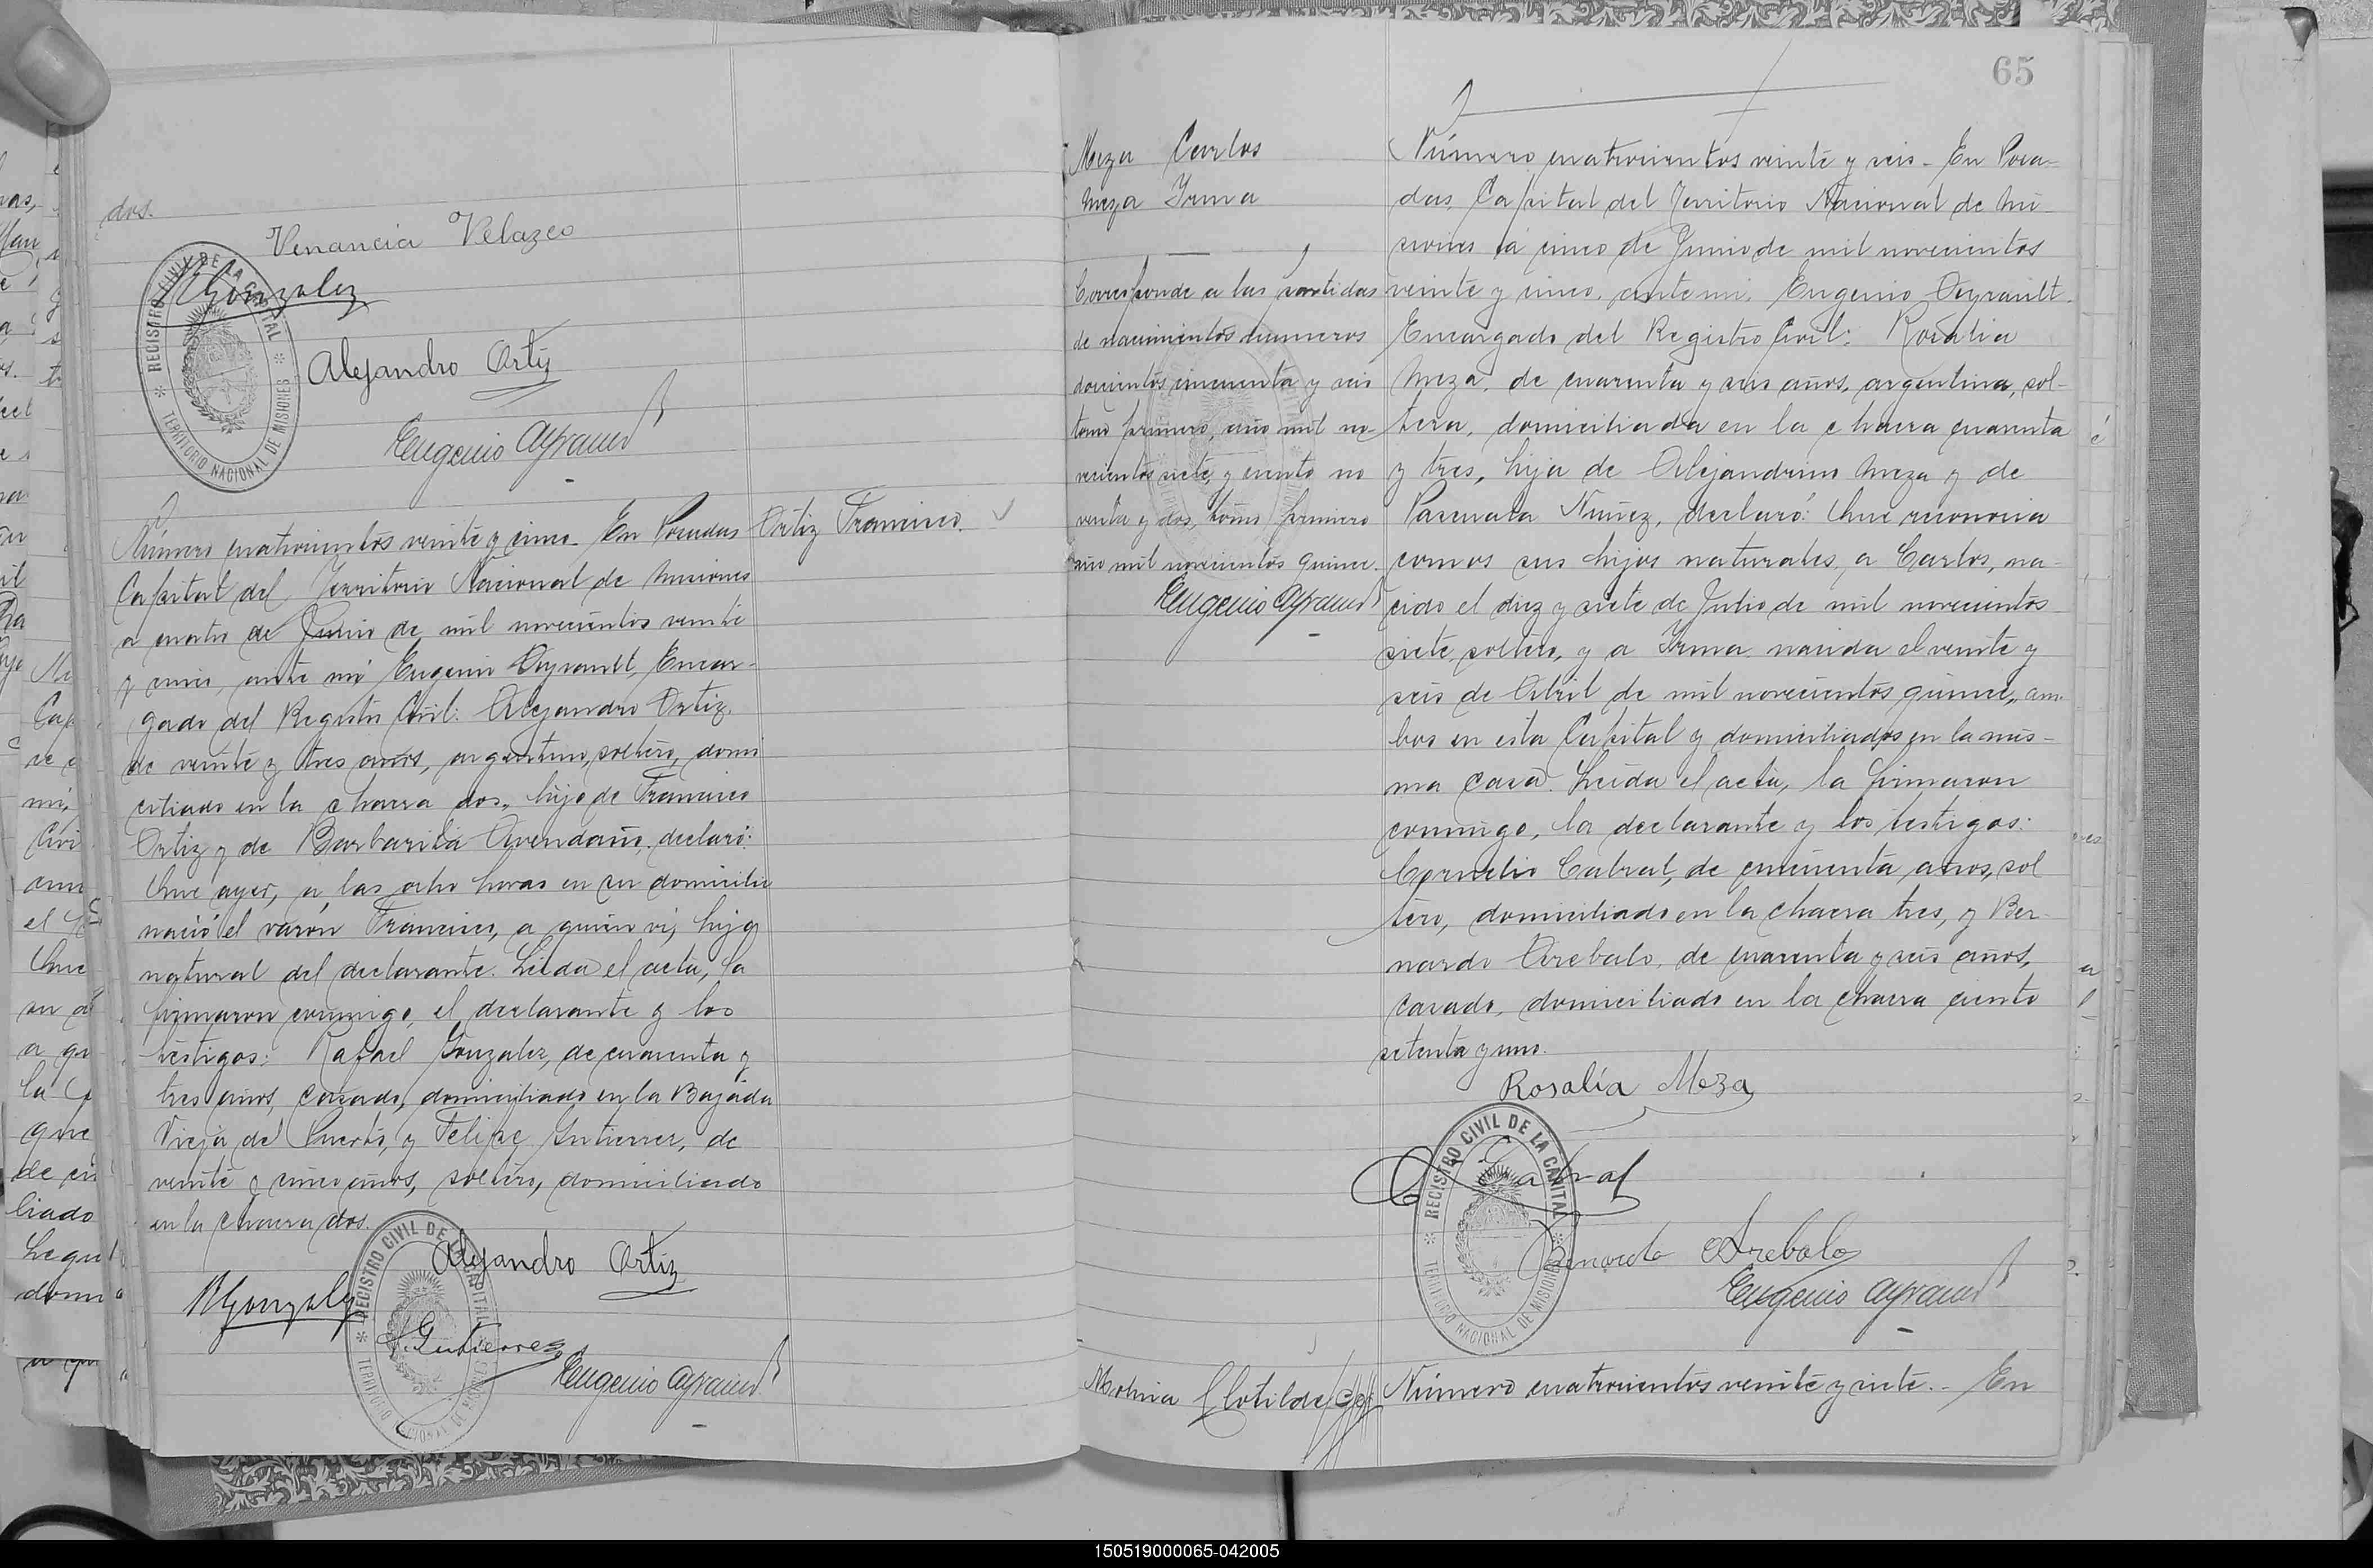 dos.
Venancia Velazco
RGonzalez
Alejandro Ortiz
Eugenio Ayrault
REGISTRO CIVIL DE LA CAPITAL
TERRITORIO NACIONAL DE MISIONES
Ortiz Francisco
Número cuatrocientos veinte y cinco. En Posadas
Capital del Territorio Nacional de Misiones
a cuatro de Junio de mil novecientos veinte
y cinco, ante mí Eugenio Ayrault, Encar-
gado del Registro Civil: Alejandro Ortiz,
de veinte y tres años, argentino, soltero, domi
ciliado en la chacra dos, hijo de Francisco
Ortiz y de Barbarita Avendaño, declaró:
Que ayer, a las ocho horas en su domicilio
nació el varón Francisco, a quien vi, hijo
natural del declarante. Leida el acta, la
firmaron conmigo, el declarante y los
testigos: Rafael Gonzalez, de cuarenta y
tres años, casado, domiciliado en la Bajada
Vieja del Puerto, y Felipe Gutierrez, de
veinte y cinco años, soltero, domiciliado
en la chacra dos.
Alejandro Ortiz
RGonzalez
F. Gutierrez
Eugenio Ayrault
REGISTRO CIVIL DE LA CAPITAL
TERRITORIO NACIONAL DE MISIONES
65
Meza Carlos
Meza Irma
Corresponde a las partidas
de nacimientos numeros
doscientos cincuenta y seis
tomo primero, año mil no-
vecientos siete, y ciento no
venta y dos, tomo primero
año mil novecientos quince.
Eugenio Ayrault
Número cuatrocientos veinte y seis - En Posa-
das, Capital del Territorio Nacional de Mi
siones á cinco de Junio de mil novecientos
veinte y cinco, ante mi, Eugenio Ayrault
Encargado del Registro Civil: Rosalia
Meza, de cuarenta y seis años, argentina, sol-
tera, domiciliada en la chacra cuarenta
y tres, hija de Alejandrino Meza y de
Pascuala Nuñez, declaró: Que reconocia
como sus hijos naturales, a Carlos, na-
cido el diez y siete de Julio de mil novecientos
siete, soltero, y a Irma, nacida el veinte y
seis de Abril de mil novecientos quince, am-
bos en esta Capital y domiciliados en la mis-
ma casa. Leida el acta, la firmaron
conmigo, la declarante y los testigos:
Cornelio Cabral, de cincuenta años, sol
tero, domiciliado en la chacra tres, y Ber-
nardo Arebalo, de cuarenta y seis años,
casado, domiciliado en la chacra ciento
setenta y uno.
Rosalía Meza
C Cabral
Bernardo Arebalo
Eugenio Ayrault
REGISTRO CIVIL DE LA CAPITAL
TERRITORIO NACIONAL DE MISIONES
Clotilde
Número cuatrocientos veinte y siete. - En
150519000065-042005